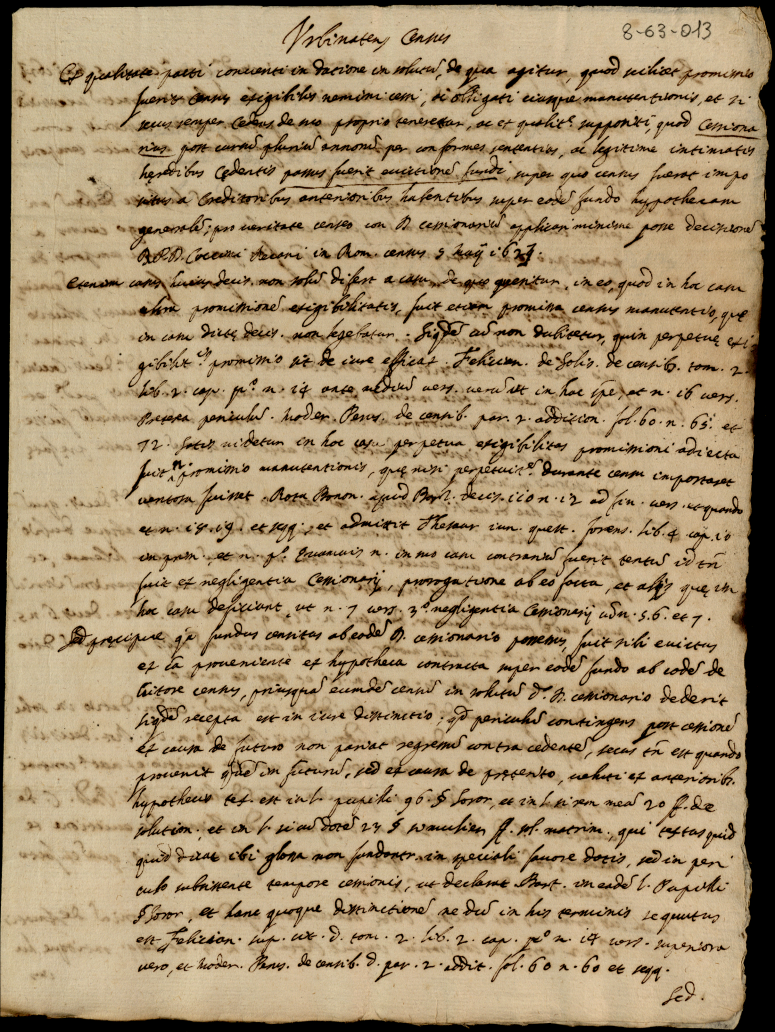 8-63-013
Urbinaten Census
Ex qualitate pacti conventi in datione in solutũ, de qua agitur, quod scilicet promissio
fuerit census exigibilis nemini cessi, nec obligati eiusque manutentionis, et si
secus semper Cedens de suo proprio teneretur, ac et qualit. suppositi, quod Cessiona
rius post cursũ plurium annorũ per conformes sententias, ac legitime intimatis
hęredibus Cędentis passus fuerit evictionẽ fundi, super quo census fuerat impo
situs a Creditoribus anterioribus habentibus super eodẽ fundo hypothecam
generalẽ; pro veritate censeo con D. cessionariũ applicari minime posse decisionẽ
R.P.D. Coccini Decani in Rom. census 5 Maij 1627.
Etenim casus huius decis. non solũ differt a casu, de quo quęritur, in eo, quod in hoc casu
ultra promissionẽ exigibilitatis, fuit etiam promissa census manutentio, quę
in casu dictę decis. non legebatur. Siquidẽ cũ non dubitetur, quin perpetuę exi
gibilit.is promissio sit de iure efficax. Felician. de Solis. de censib. tom. 2.
lib. 2. cap. p.o n. 14 ante mediũ vers. verũ et in hac spe, et n. 16 vers.
Pręterea periculũ. Moder. Perus. de censib. par. 2. addition. fol. 60. n. 65. et
72. satis videtur in hoc casu perpetua exigibilitas promissioni adiecta
fuit promissio manutentionis, quę nisi perpetuit. durante censu importaret
ventosa fuisset. Rota Bonon. apud decis. 110 n. 12 ad fin. vers. et quando
et n. 18. 19. et seqq., et admittit Thesaur. iun. quest. forens. lib. 4 cap. 10
in prin. et n. p.o Quamvis n. in suo casu contrariũ fuerit tentũ id tñ
fuit ex negligentia Cessionarij, prorogatione ab eo facta, et alijs quę in
hoc casu deficiunt, ut n. 7 vers. 3.o negligentia Cessionarij n. 5. 6. et 7.
Sed pręcipue quia fundus censitus ab eodẽ D. cessionario possessus, fuit sibi evictus
ex cã proveniente ex hypotheca contracta super eodẽ fundo ab eodẽ de
bitore census, priusquã eumdẽ censũ in solutũ d.o D. cessionario dederit
siquidẽ recepta est in iure distinctio, qd periculũ contingens post cessionẽ
ex causa de futuro non pariat regressũ contra cedentẽ, secus tñ est quando
provenit quidẽ in futurũ, sed ex causa de pręterito, veluti ex anteriorib.
hypothecis tex. est in l. pupilli 96. § soror, et in l. si rem meã 20 ff. de
solution. et in l. si cũ dotẽ 23 § si mulier ff. sol. matrim., qui textus quid
quid dicat ibi glosa non fundantr in speciali favore dotis, sed in peri
culo subsistente tempore cessionis, ut declarat Bart. in eadẽ l. Pupilli
§ soror, et hanc quoque distinctionẽ ne dũ in his terminis sequutus
est Felician. sup. cit. d. tom. 2. lib. 2. cap. p.o n. 14 vers. superiora
vero, et Moder. Perus. de censib. d. par. 2. addit. fol. 60 n. 60 et seqq.
Sed.